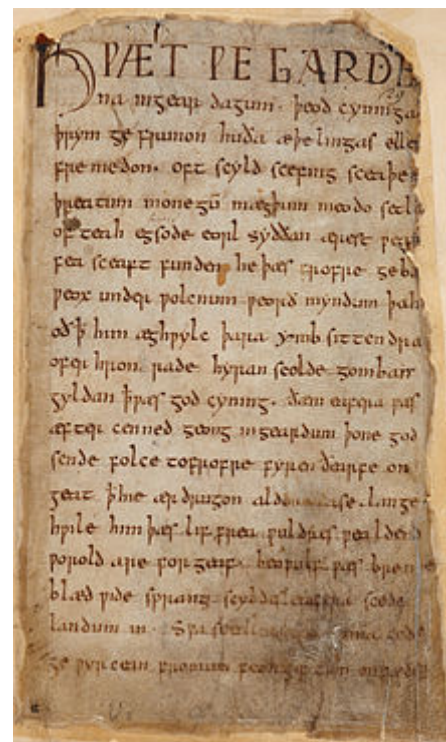 HǷÆT ǷE GARDE
na in gear dagum. þeod cyninga
þrym ge frunon huða æþelingas elle
fre medon. oft scyld scefing sceaþe
þreatum monegū mægþum meodo setla
of teah egsode eorl syððan ærest ƿear
fea sceaft funden he þæs frofre geba
ƿeox under ƿolcnum ƿeorð myndum þah
oð ꝥ him æghƿylc þara ymb sittendra
ofer hron rade hyran scolde gomban
gyldan ꝥ ƿæs god cyning. ðæm eafera ƿæs
æfter cenned geong in geardum þone god
sende folce tofrofre fyren ðearfe on
geat ꝥ hie ær drugon lange
hƿile him þæs lif frea ƿuldres ƿealdend
ƿorold are for geaf. beoƿulf ƿæs breme
blæd ƿide sprang scyldes eafera scede
landum in. Sƿa gode
ge ƿyrcean fromum feoh giftum on fæder